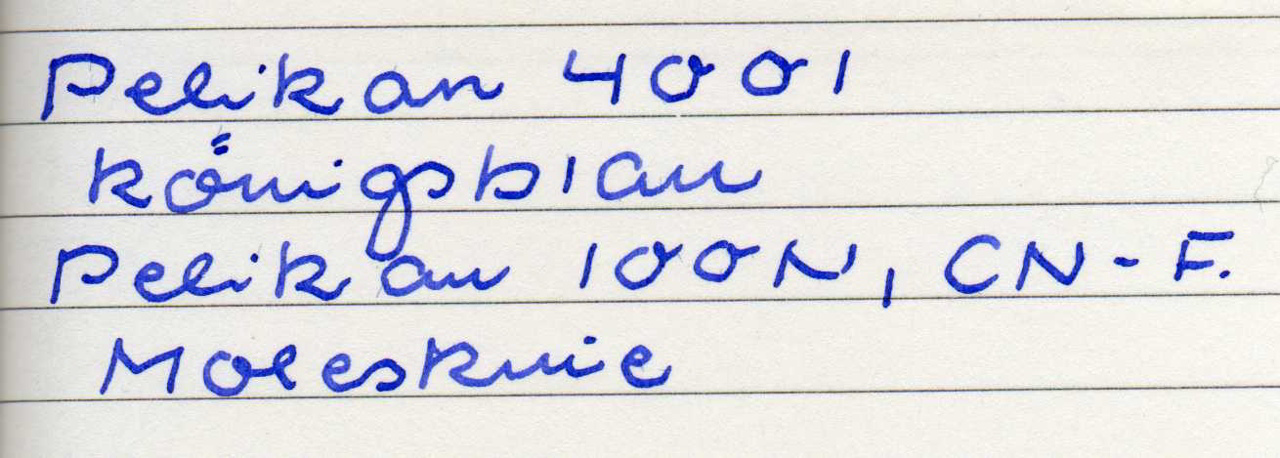 Pelikan 4001
königsblau
Pelikan 100N, CN-F.
Moleskine